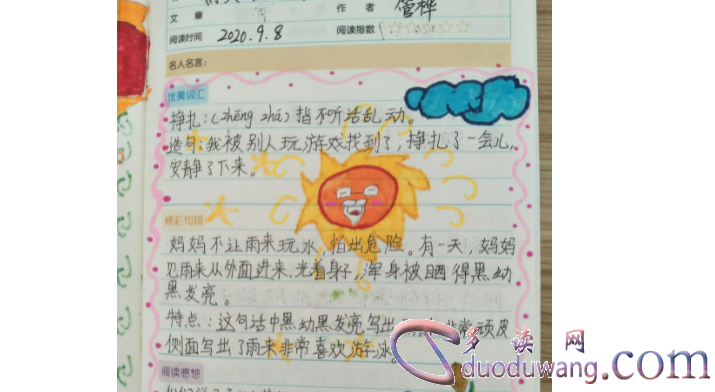 文 章
作 者 管桦
阅读时间 2020.9.8 阅读指数 ☆☆☆☆☆
名人名言：
优美词汇
挣扎：(zhēng zhá) 指不听话乱动。
造句：我被别人玩游戏找到了，挣扎了一会儿，
安静了下来。
精彩句段
妈妈不让雨来玩水，怕出危险。有一天，妈妈
见雨来从外面进来，光着身子，浑身被晒得黑幼
黑发亮。
特点：这句话中黑幼黑发亮写出 非常顽皮
侧面写出了雨来非常喜欢游泳
阅读感想
多读网
duoduwang.com